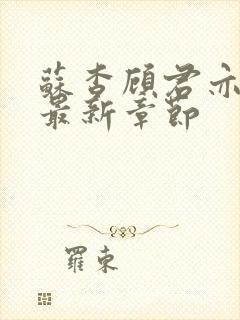 蘇杏顧君亦
最新章節
羅東